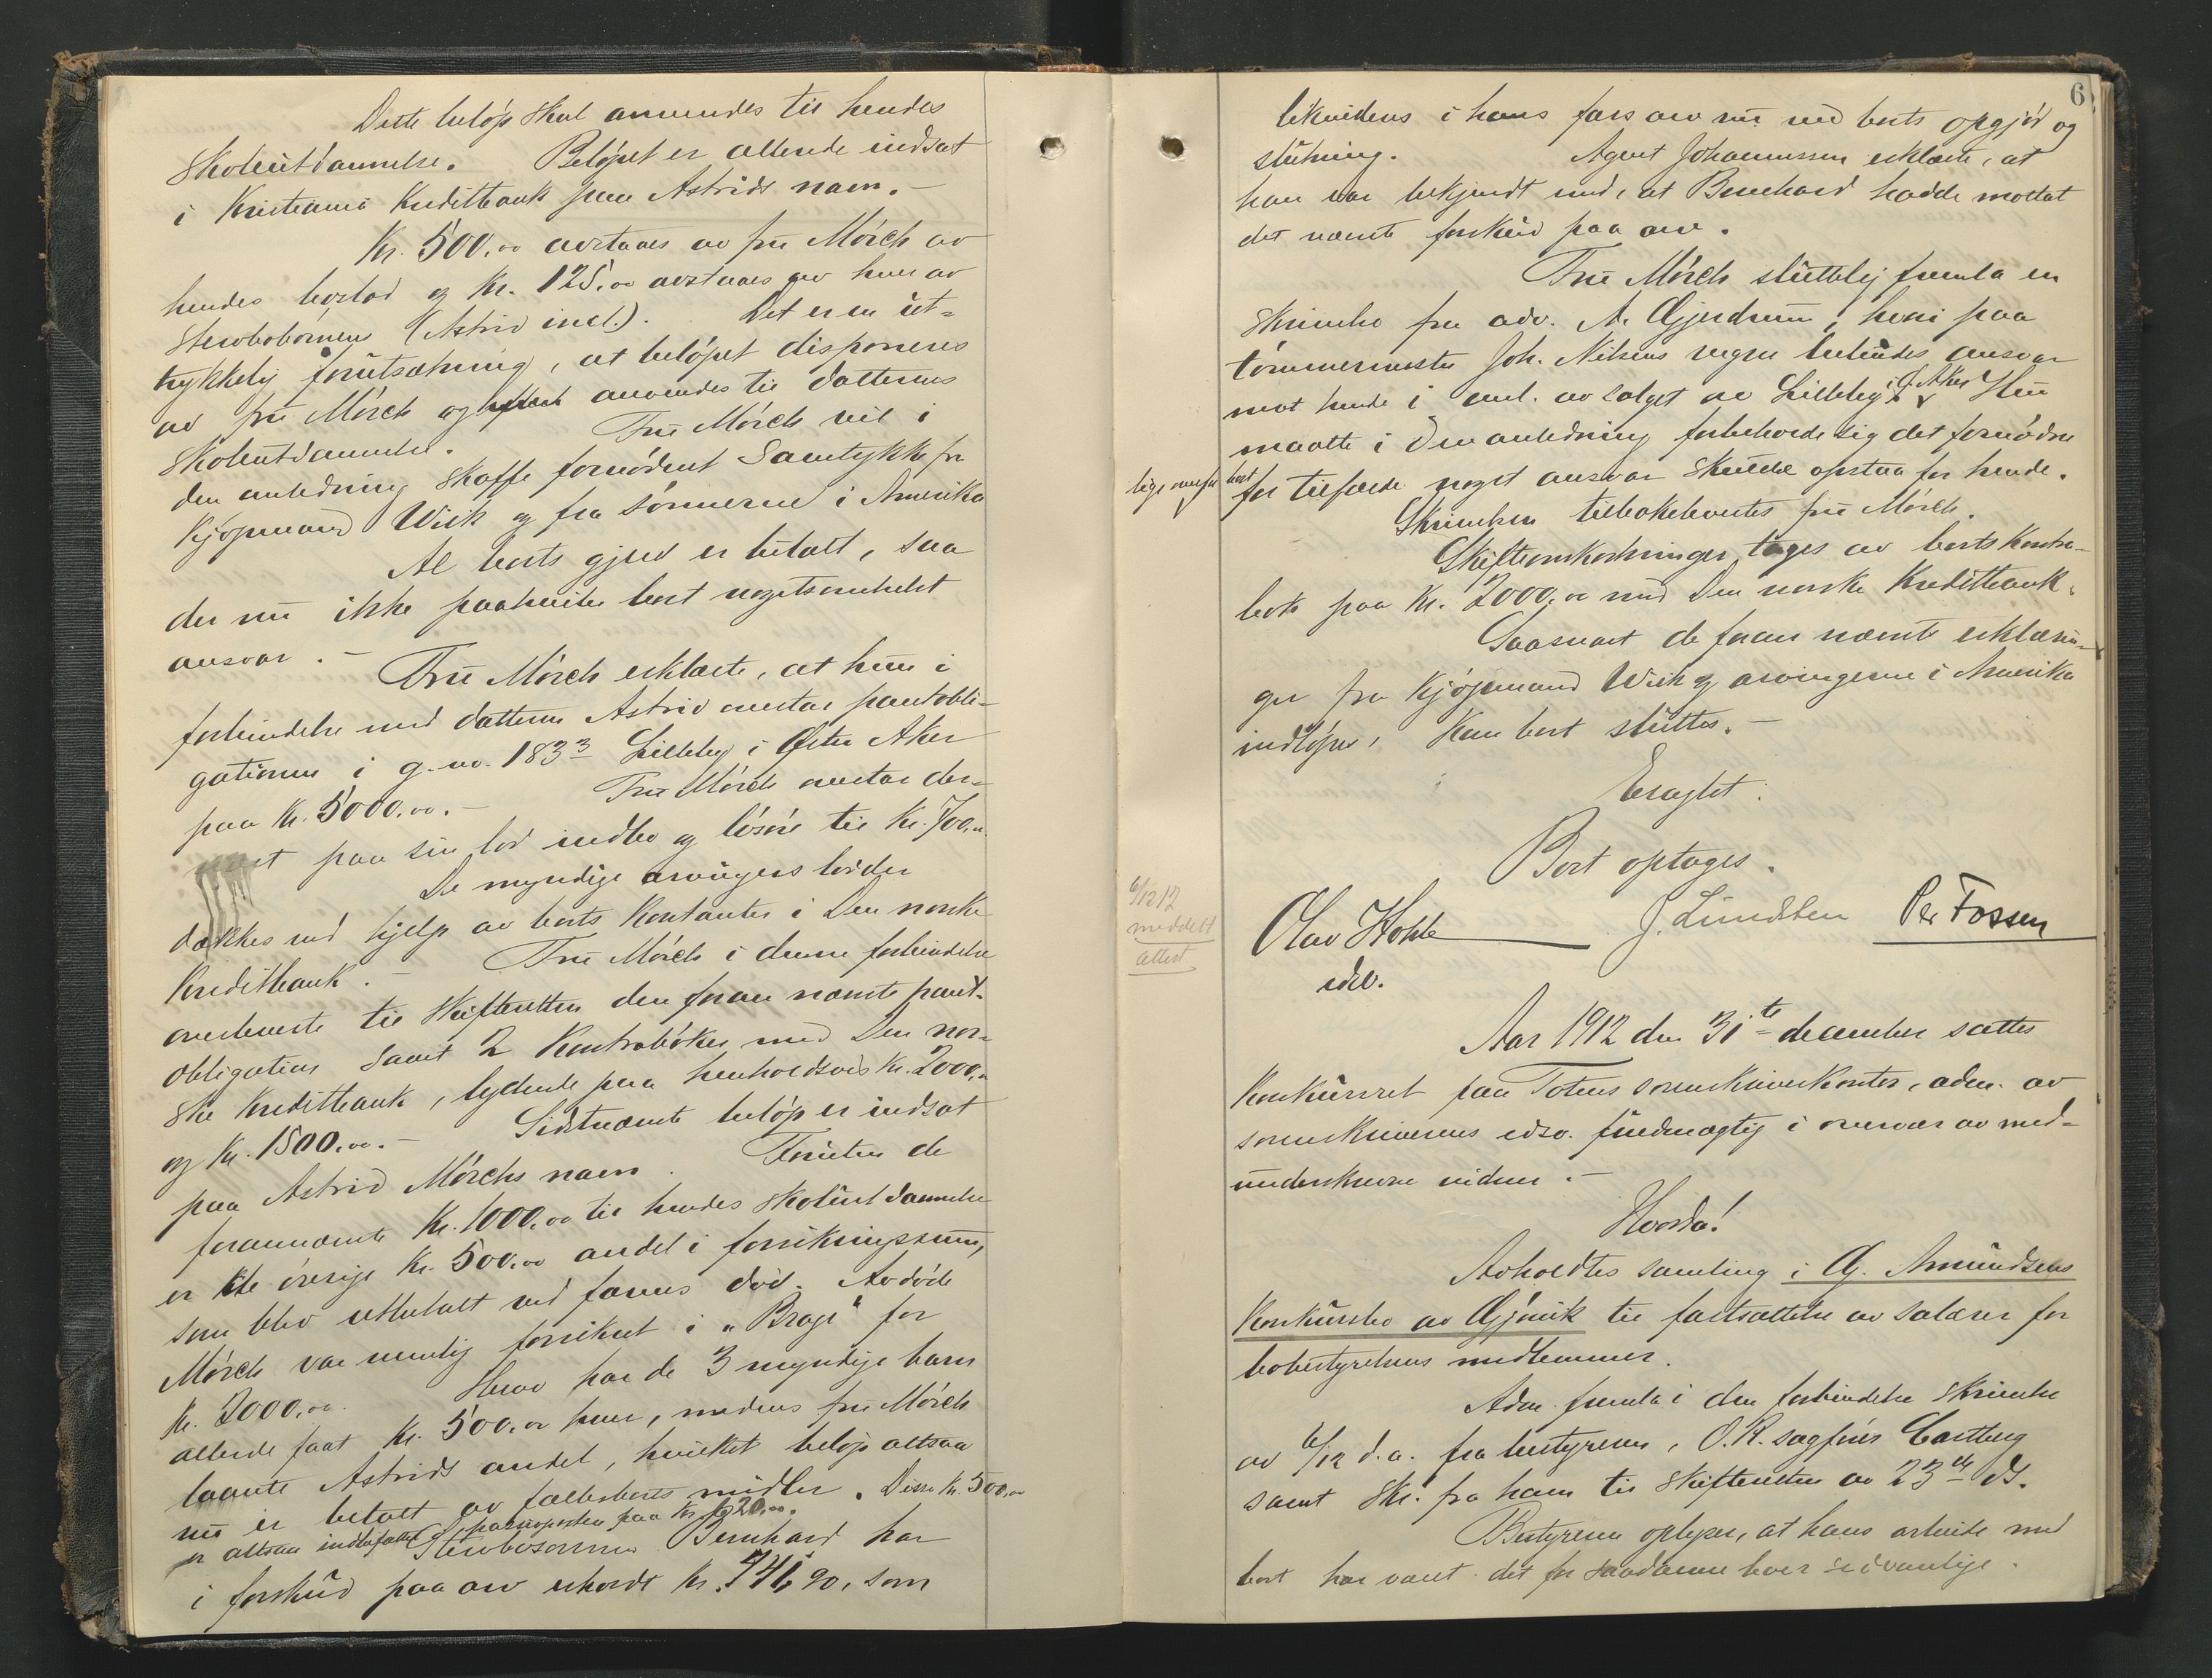 Dette beløp skal anvendes til hendes
skoleutdannelse. Beløpet er allerede indsat
i Kristiania Kreditbank paa Astrids navn. -
Kr. 500.00 avstaaes av fru Mörch av
hendes boslod og Kr. 125.00 avstaaes av hver av
stervbobörnene (Astrid incl.). Det er en ut-
trykkelig forutsætning, at belöpet disponeres
av fru Mörch og anvendes til datterens
skoleutdannelse. Fru Mörch vil i
den anledning skaffe fornödent samtykke fra
kjöpmand Wiik og fra sönnerne i Amerika
Al boets gjæld er betalt, saa
der nu ikke paahviler boet nogetsomhelst
ansvar. - Fru Mörch erklærte, at hun i
forbindelse med datteren Astrid overtar pantobli-
gationen i g.-no. 183³ Lilleby i Østre Aker
paa Kr. 5000.00. - Fru Mörch overtar der-
paa sin lod indbo og lösöre til Kr. 700.00
De myndige arvingers lodder
dækkes ved hjelp av boets kontanter i Den norske
Kreditbank. - Fru Mörch i denne forbindelse
overleverte til skifteretten den foran nævnte pant-
obligation samt 2 kontraböker med Den nor-
ske Kreditbank, lydende paa henholdsvis Kr. 2000.00
og Kr. 1500.00. - Sidstnævnte belöp er indsat
paa Astrid Mörchs navn. Foruten de
forannævnte Kr. 1000.00 til hendes skoleutdannelse
er de övrige Kr. 500.00 andel i forsikringssum,
som blev utbetalt ved farens död. Avdöde
Mörch var nemlig forsikret i "Brage" for
Kr. 2000.00. Herav har de 3 myndige barn
allerede faat Kr. 500.00 hver, medens fru Mörch
laante Astrids andel, hvilket belöp altsaa
nu er betalt av fællesboets midler. Disse Kr. 500.00
er altsaa indbefattet i passivposten paa Kr. 620.00.
Stervbosönnen Bernhard har
i forskud paa arv erholdt Kr. 746.90, som
6
likvideres i hans fars arv nu ved boets opgjör og
slutning. Agent Johannessen erklærte, at
han var bekjendt med, at Bernhard hadde mottat
det nævnte forskud paa arv.
Fru Mörch sluttelig fremla en
skrivelse fra adv. A. Gjerdrum, hvori paa
tömmermester Joh. Nilsens vegne bebudes ansvar
mot hende i anl. av salget av Lilleby i Ø. Aker. Hun
maatte i den anledning forbeholde sig det fornödne
lige overfor boet
for tilfælde noget ansvar skulde opstaa for hende.
Skrivelsen tilbakelevertes fru Mörch.
Skifteomkostninger tages av boets kontra-
bok paa Kr. 2000.00 med Den norske Kreditbank.
Saasnart de foran nævnte erklærin-
ger fra kjöpmand Wiik og arvingerne i Amerika
indlöper, kan boet sluttes. -
Eragtet:
Boet optages.
6/12 12
meddelt
attest
Olav Hohle J. Lundsten Per Fossen
edsv.
Aar 1912 den 31te december sattes
konkursret paa Totens sorenskriverkontor, adm. av
sorenskriverens edsv. fuldmægtig i overvær av med-
underskrevne vidner. -
Hvorda!
Avholdtes samling i G. Amundsens
konkursbo av Gjövik til fastsættelse av salærer for
bobestyrelsens medlemmer.
Adm. fremla i den forbindelse skrivelse
av 6/12 d.a. fra bestyreren, O.R. sagförer Castberg
samt skr. fra ham til skifteretten av 23de ds.
Bestyreren oplyser, at hans arbeide med
boet har været det for saadanne boer sedvanlige.